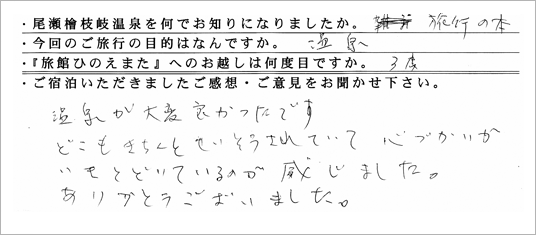 ・尾瀬檜枝岐温泉を何でお知りになりましたか。 旅行の本
・今回のご旅行の目的はなんですか。 温泉へ
・『旅館ひのえまた』へのお越しは何度目ですか。 3度
・ご宿泊いただきましたご感想・ご意見をお聞かせ下さい。
温泉が大変良かったです
どこもきちんとせいそうされていて 心づかいが
いきとどいているのが 感じました。
ありがとうございました。